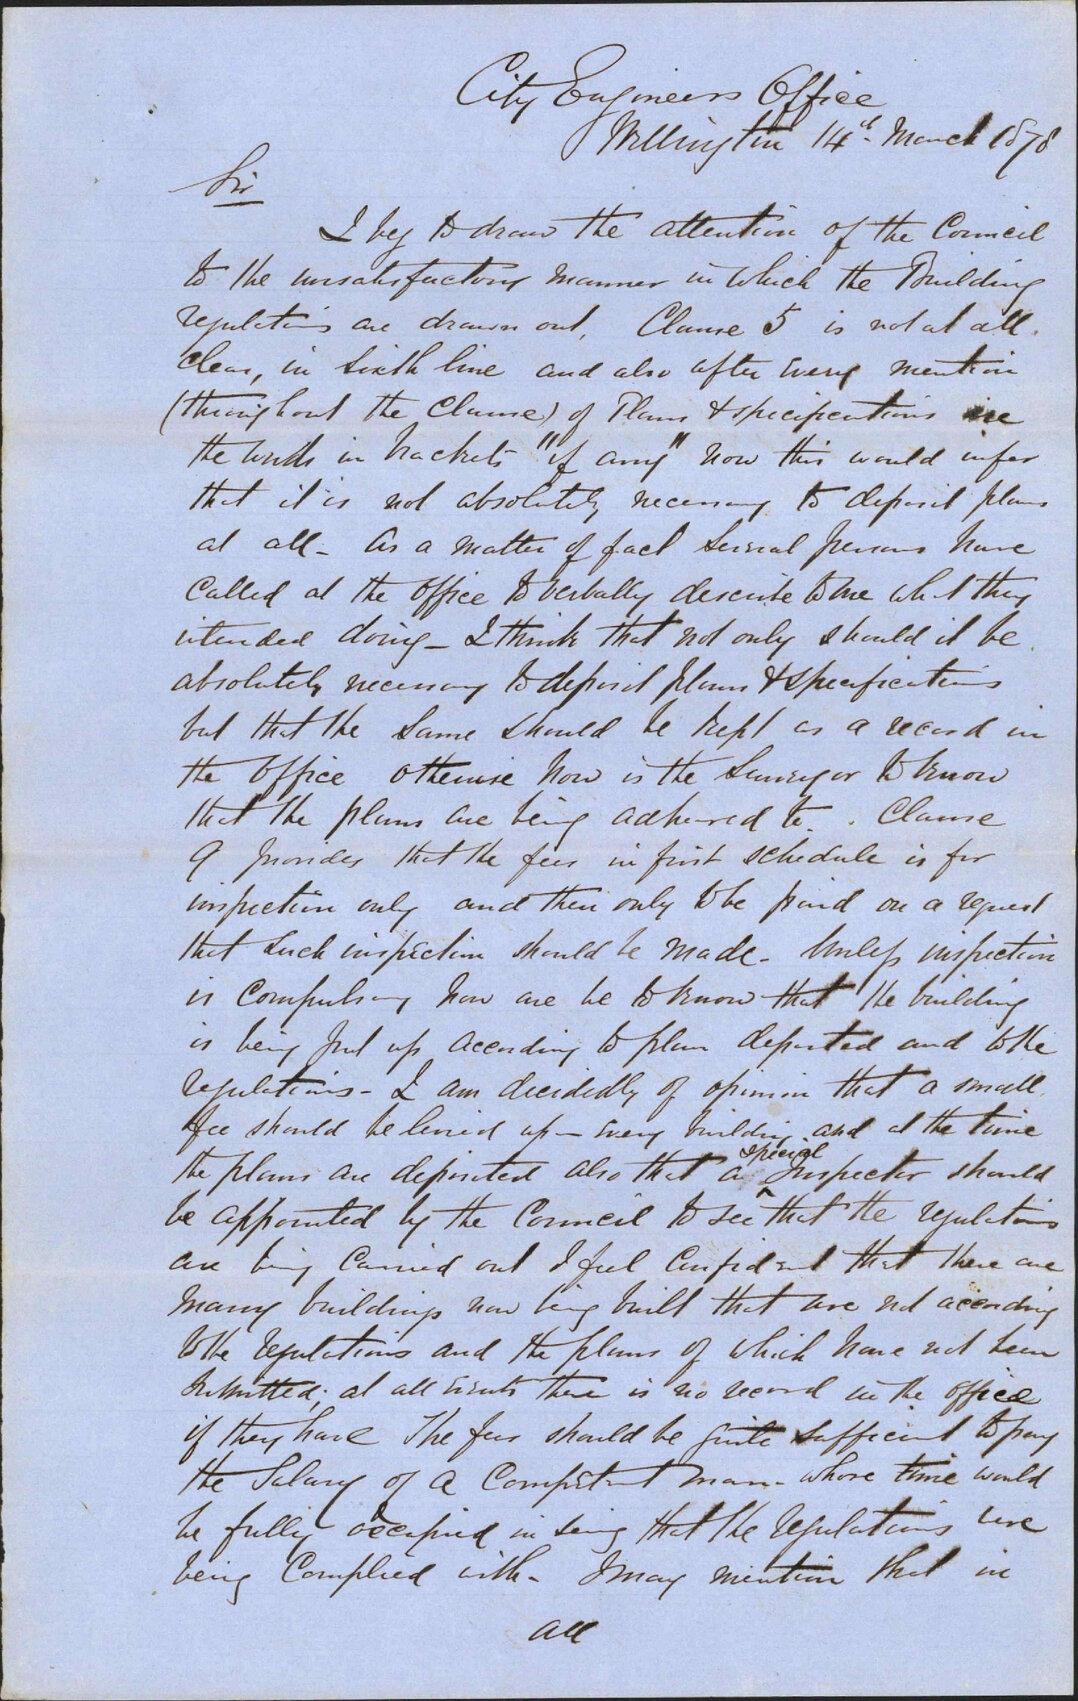 City Engineers Office
Wellington 14th March 1878
Sir
I beg to draw the attention of the Council
to the unsatisfactory manner in which the Building
regulations are drawn out. Clause 5 is not at all
clear, in sixth line and also after every mention
(throughout the Clause) of Plans & specifications are
the words in brackets "if any" now this would infer
that it is not absolutely necessary to deposit plans
at all - As a matter of fact several persons have
called at the office to verbally describe to me what they
intended doing - I think that not only should it be
absolutely necessary to deposit plans & specifications
but that the same should be kept as a record in
the office otherwise how is the Surveyor to know
that the plans are being adhered to. Clause
9 provides that the fees in first schedule is for
inspection only and then only to be paid on a request
that such inspection should be made - Unless inspection
is compulsory how are we to know that the building
is being put up according to plan deposited and to the
regulations - I am decidedly of opinion that a small
fee should be levied upon every building and at the time
the plans are deposited also that a special Inspector should
be appointed by the Council to see that the regulations
are being carried out I feel confident that there are
many buildings now being built that are not according
to the regulations and the plans of which have not been
submitted; at all events there is no record in the office
if they have The fees should be quite sufficient to pay
the Salary of a Competent man - whose time would
be fully occupied in seeing that the regulations were
being Complied with - I may mention that in
all